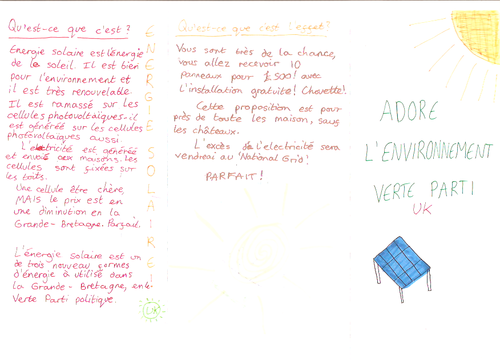 Qu'est-ce que c'est?
Energie solaire est l'énergie
de le soleil. Il est bien
pour l'environnement et
il est très renouvelable.
Il est ramassé sur les
cellules photovoltaiques. il
est généréé sur les cellules
photovoltaiques aussi
L'electricité est, généréé
et envoié aux maisons. Les
cellules sont fixées sur
les toits.
Une cellule être chère,
MAIS le prix est en
une diminution en la
Grande-Bretagne. Parfait.
L'énergie solaire est un
de trois nouveau formes
d'énergie à utilisé dans
la Grande-Bretagne, en le
Verte Parti politique.
ENERGIE SOLAIRE!
UK
Qu'est-ce que c'est l'effet?
Vous sont très de la chance,
vous allez recevoir 10
panneaux pour £500! avec
l'installation gratuite! Chouette!.
Cette proposition est pour
près de toute les maison, sauf
les châteaux.
L'excès de l'electricité sera
vendrai au 'National Grid'!
PARFAIT!
ADORE
L'ENVIRONNEMENT
VERTE PARTI
UK